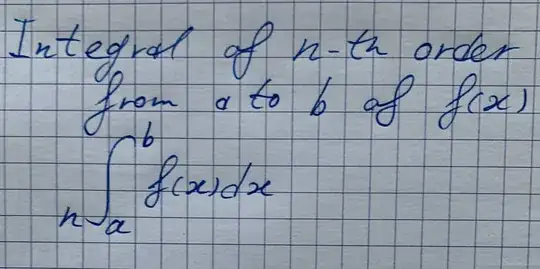 Integral of n-th order
from a to b of f(x)
n∫_a^b f(x)dx